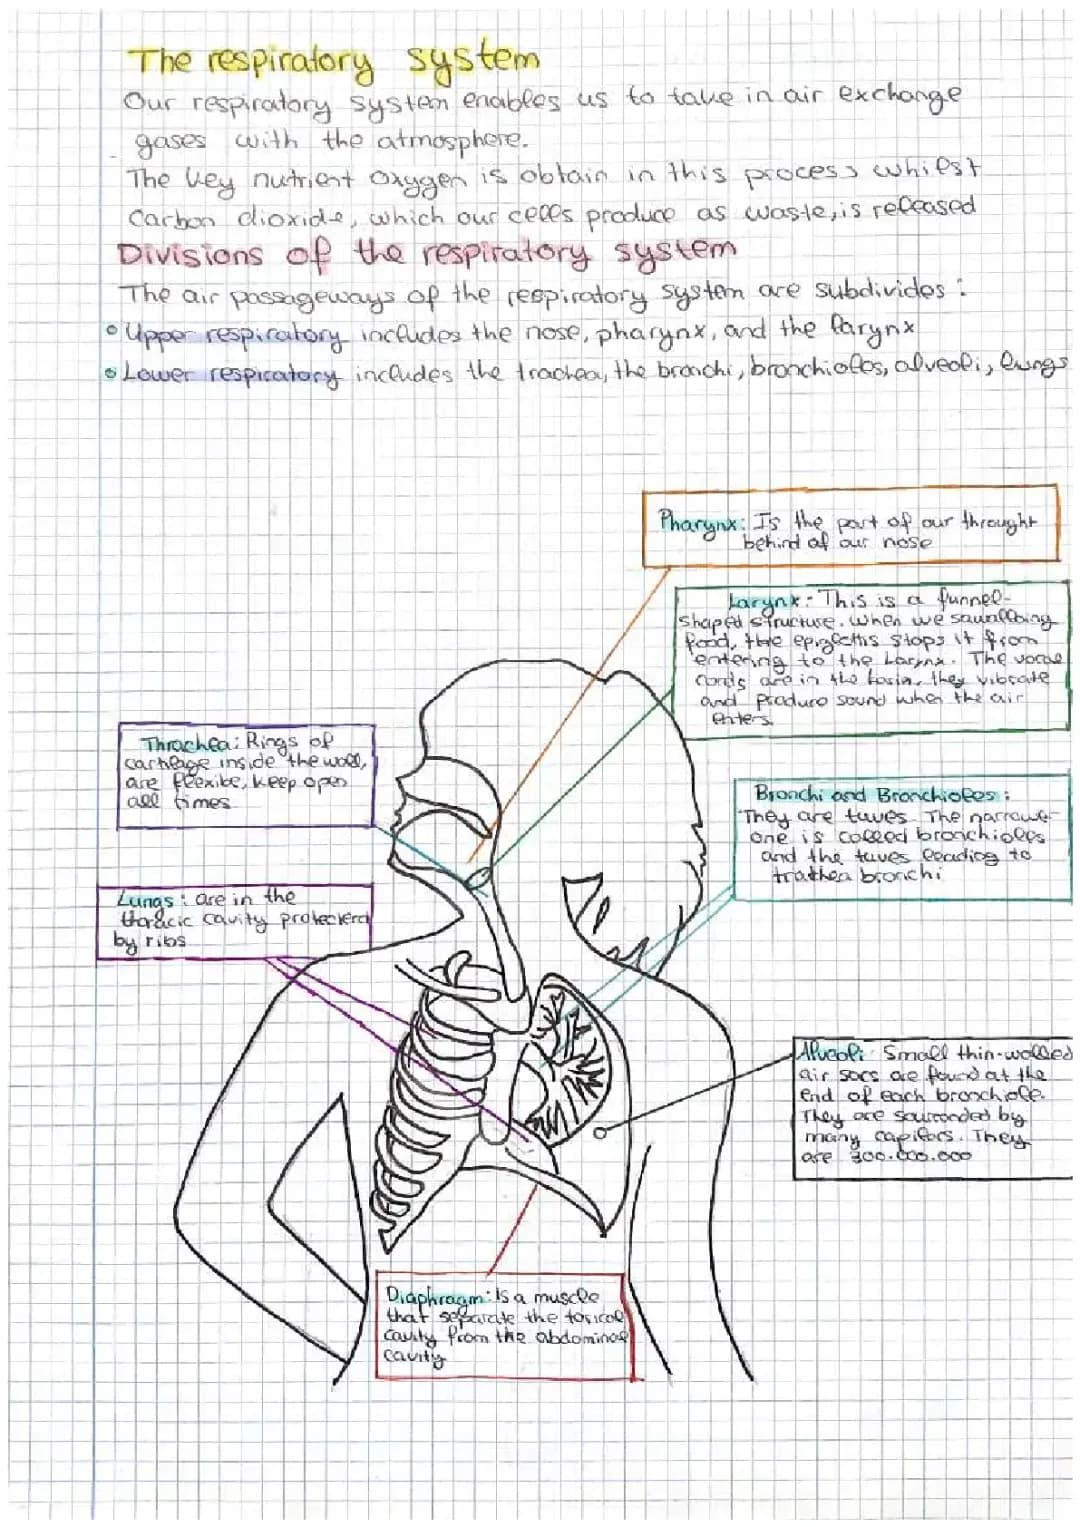 The respiratory system
Our respiratory system enables us to take in air exchange
gases with the atmosphere.
The key nutrient oxygen is obtain in this process whilst
Carbon dioxide, which our cells produce as waste, is released
Divisions of the respiratory system
The air passageways of the respiratory system are subdivides :
Uppe respiratory includes the nose, pharynx, and the larynx
Lower respiratory includes the trachea, the bronchi, bronchioles, alveoli, lungs
Pharynx: Is the part of our throught
behind of our nose
Larynx: This is a funnel-
shaped structure. When we sawallbing
food, the epiglottis stops it from
entering to the Larynx. The vocal
cords are in the they vibrate
and produre sound when the air
enters.
Thrachea: Rings of
cartilage inside the wall,
are flexibe, keep open
all times
Bronchi and Bronchioles :
They are tuves. The narrowe
one is called bronchioles
and the tuves leading to
trathea bronchi
Lungs : are in the
thoracic cavity protecterd
by ribs
Alveoli: Small thin-walled
air sacs are found at the
end of each bronchiole.
They are sourronded by
many capilars. They
are 300.000.000
Diaphragm: Is a muscle
that separate the torical
cavity from the abdominal
cavity